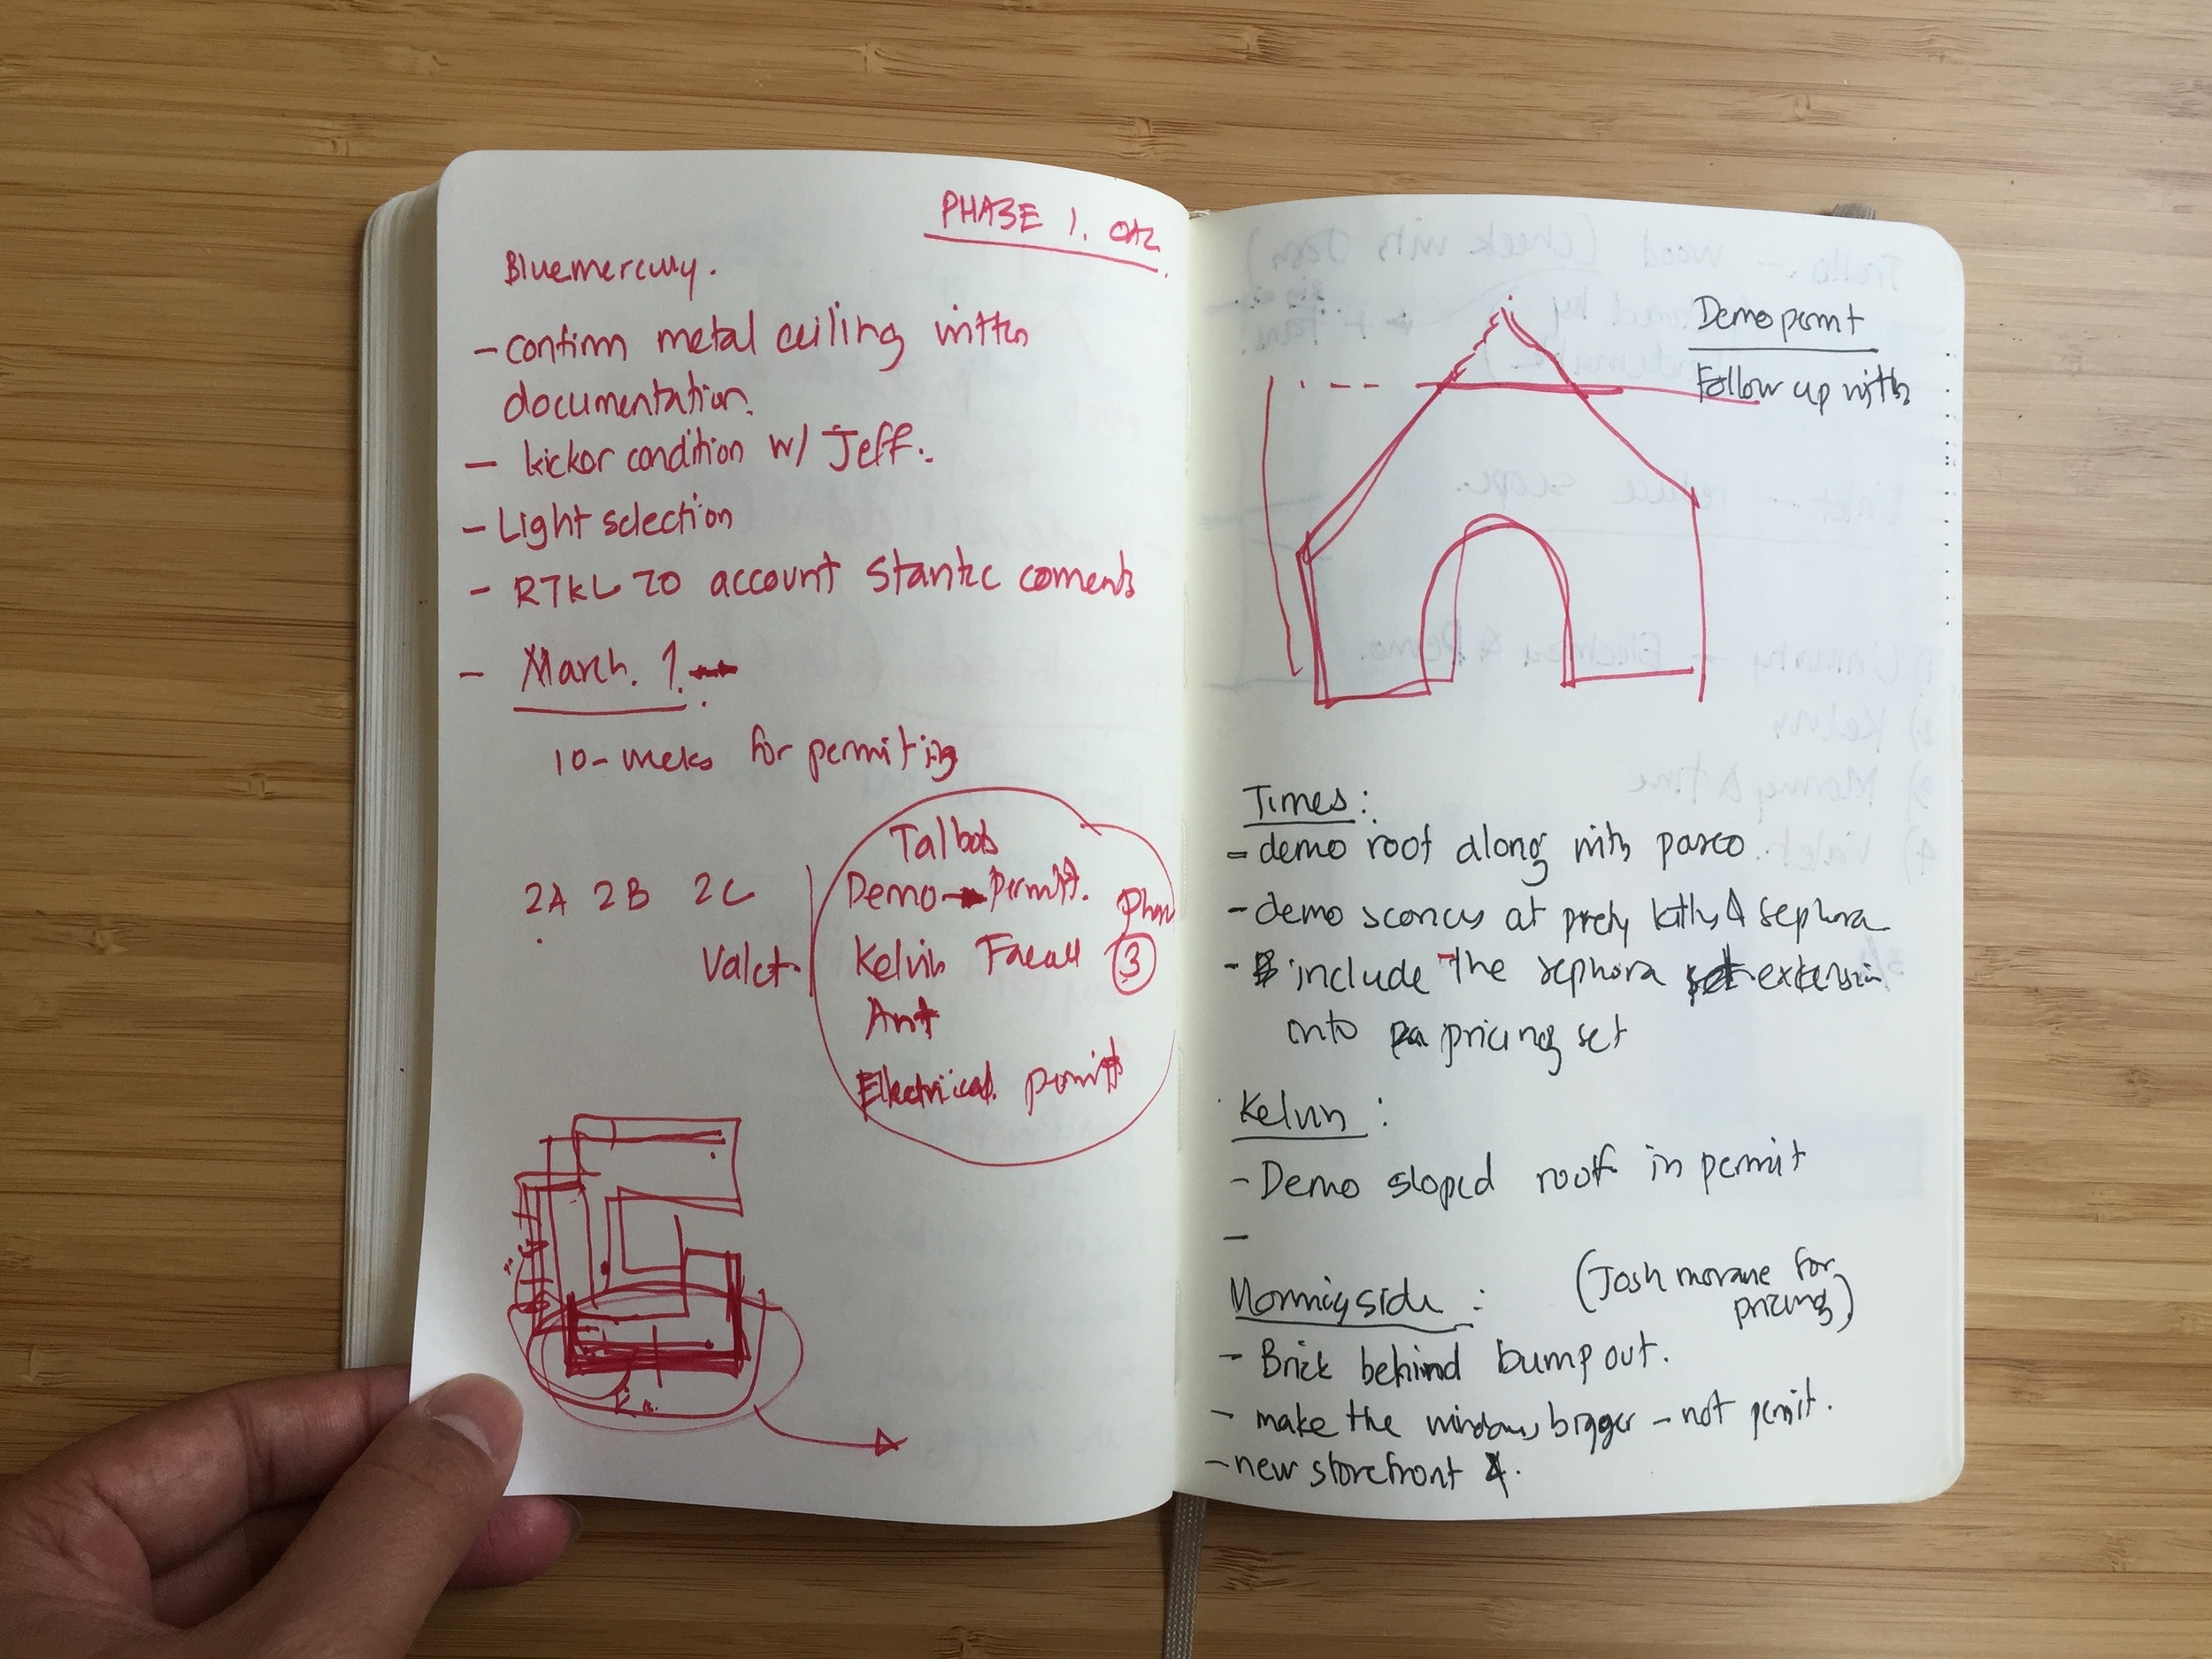 PHASE 1. OAC
Bluemercury.
- confirm metal ceiling with
documentation.
- kickor condition w/ Jeff.
- Light selection
- RTKL TO account Stantec coments
- March. 1.
10-weeks for permiting
Talbots
Demo permit.
2A 2B 2C
Phase
Valet.
Kelvin
3
Ant
Electrical permit
Demo permt
Follow up with
Times:
- demo roof along with paseo
- demo sconces at prety kitty & sephora
- include The sephora extension
into pricing set
Kelvin:
- Demo sloped roof in permit
-
Morningside:
(Josh morane for
pricing)
- Brick behind bump out.
- make the windows bigger - not permit.
- new storefront